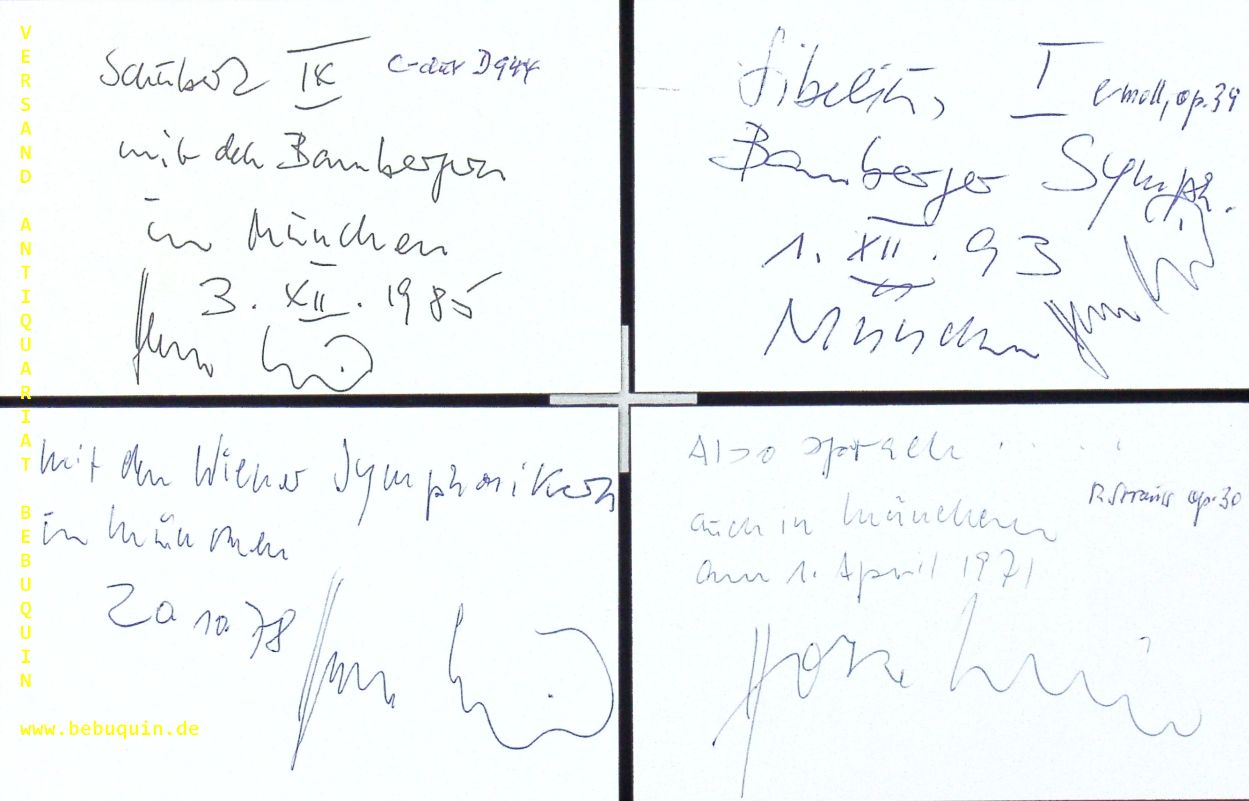 Schubert IX C-dur D944
mit den Bambergern
in München
3. XII. 1985
Sibelius, I e-moll, op. 39
Bamberger Symph.
1. XII. 93
München
mit den Wiener Symphonikern
in München
20 10. 78
Also sprach . . . . .
R. Strauss op. 30
auch in München
am 1. April 1971
Horst
VERSAND ANTIQUARIAT BEBUQUIN
www.bebuquin.de